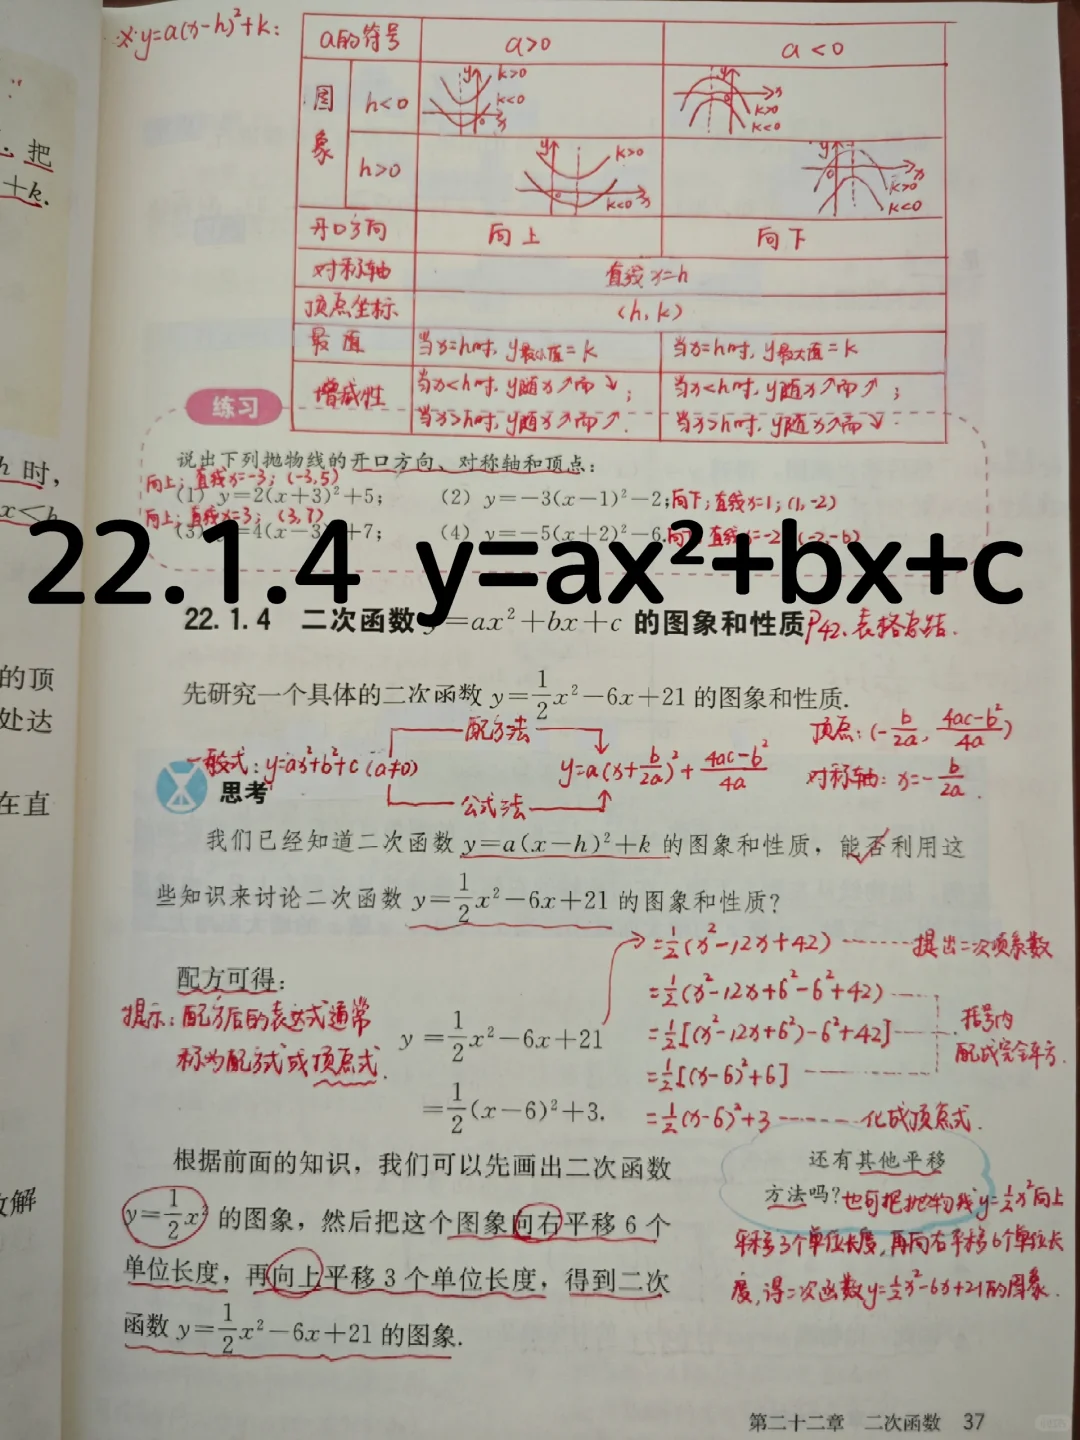 ※ y=a(x-h)²+k:
a的符号 a>0 a<0
图象 h<0 y k>0 k<0 0 x y 0 x k>0 k<0
h>0 y k>0 0 k<0 x y 0 x k>0 k<0
开口方向 向上 向下
对称轴 直线x=h
顶点坐标 (h,k)
最值 当x=h时,y最小值=k 当x=h时,y最大值=k
增减性 当x<h时,y随x↗而↘; 当x<h时,y随x↗而↗;
当x>h时,y随x↗而↗. 当x>h时,y随x↗而↘.
把
+k.
h 时,
x<h
的顶
处达
在直
解
练习
说出下列抛物线的开口方向、对称轴和顶点:
向上;直线x=-3;(-3,5)
(1) y=2(x+3)²+5; (2) y=-3(x-1)²-2; 向下;直线x=1;(1,-2)
向上;直线x=3;(3,7)
(3) y=4(x-3)²+7; (4) y=-5(x+2)²-6. 向下;直线x=-2;(-2,-6)
22.1.4 y=ax²+bx+c
22.1.4 二次函数 y=ax²+bx+c 的图象和性质 P42.表格总结.
先研究一个具体的二次函数 y=1/2x²-6x+21 的图象和性质.
配方法
顶点:(-b/2a, 4ac-b²/4a)
一般式:y=ax²+b²+c(a≠0) y=a(x+b/2a)²+4ac-b²/4a 对称轴:x=-b/2a.
思考
公式法
我们已经知道二次函数 y=a(x-h)²+k 的图象和性质,能否利用这
些知识来讨论二次函数 y=1/2x²-6x+21 的图象和性质?
=1/2(x²-12x+42) 提出二次项系数
配方可得:
=1/2(x²-12x+6²-6²+42)
提示:配方后的表达式通常
称为配方式或顶点式.
y=1/2x²-6x+21
=1/2[(x²-12x+6²)-6²+42] 括号内
配成完全平方.
=1/2[(x-6)²+6]
=1/2(x-6)²+3.
=1/2(x-6)²+3 化成顶点式.
根据前面的知识,我们可以先画出二次函数
y=1/2x² 的图象,然后把这个图象向右平移 6 个
单位长度,再向上平移 3 个单位长度,得到二次
函数 y=1/2x²-6x+21 的图象.
还有其他平移
方法吗? 也可把抛物线y=1/2x²向上
平移3个单位长度,再向右平移6个单位长
度,得二次函数y=1/2x²-6x+21的图象.
第二十二章 二次函数 37